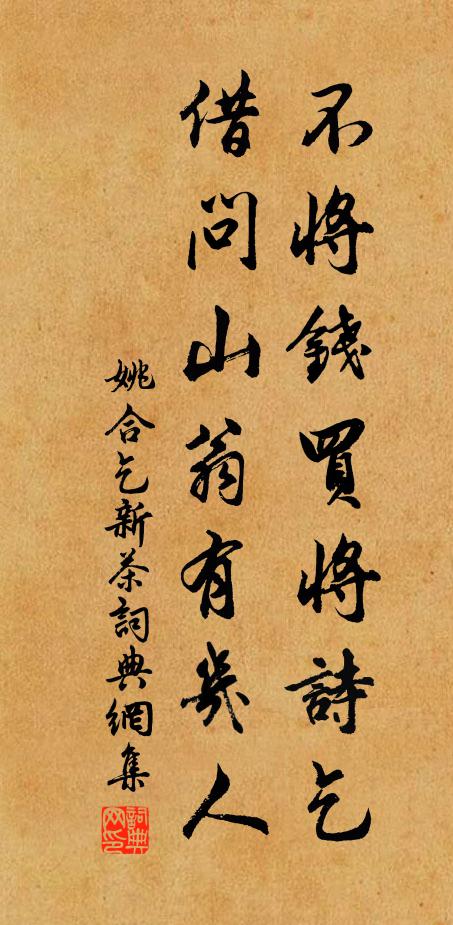 不將錢買將詩乞
借問山翁有幾人
姚合乞新茶詞典網集
詞典网印